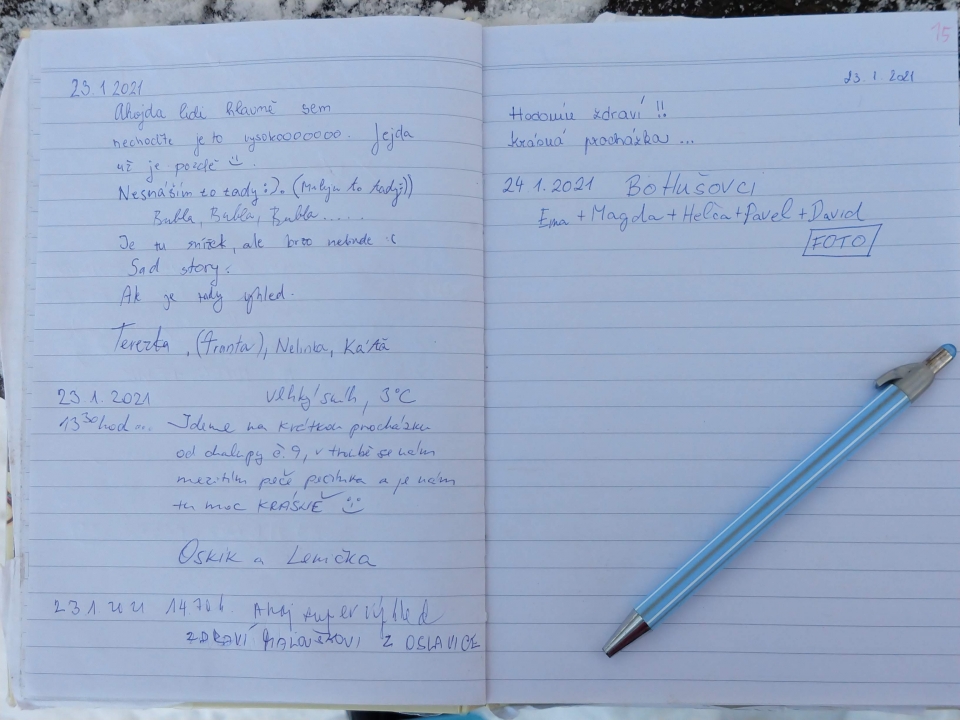 23.1.2021
Ahojda lidi hlavně sem
nechodíte je to vysokooooooo. Jejda
už je pozdě
Nesnáším to tady :). (Miluju to tady:))
Bubla, Bubla, Bubla.....
Je tu snížek, ale brzo nebude :(
Sad story:
Ak je tady výhled.
Terezka, (Franta), Nelinka, Káťa
23.1.2021 vlhký sníh, 3°C
13 30 hod... Jdeme na krátkou procházku
od chalupy č.9, v troubě se nám
mezitím peče pečínka a je nám
tu moc KRÁSNĚ
Oskik a Lenička
23.1.2021 14.30 h. Ahoj super výhled
ZDRAVÍ Z OSLAVICE
15
23.1.2021
zdraví !!
krásná procházka ...
24 1.2021 BOHUŠOVCI
Ema + Magda + Helča + Pavel + David
FOTO